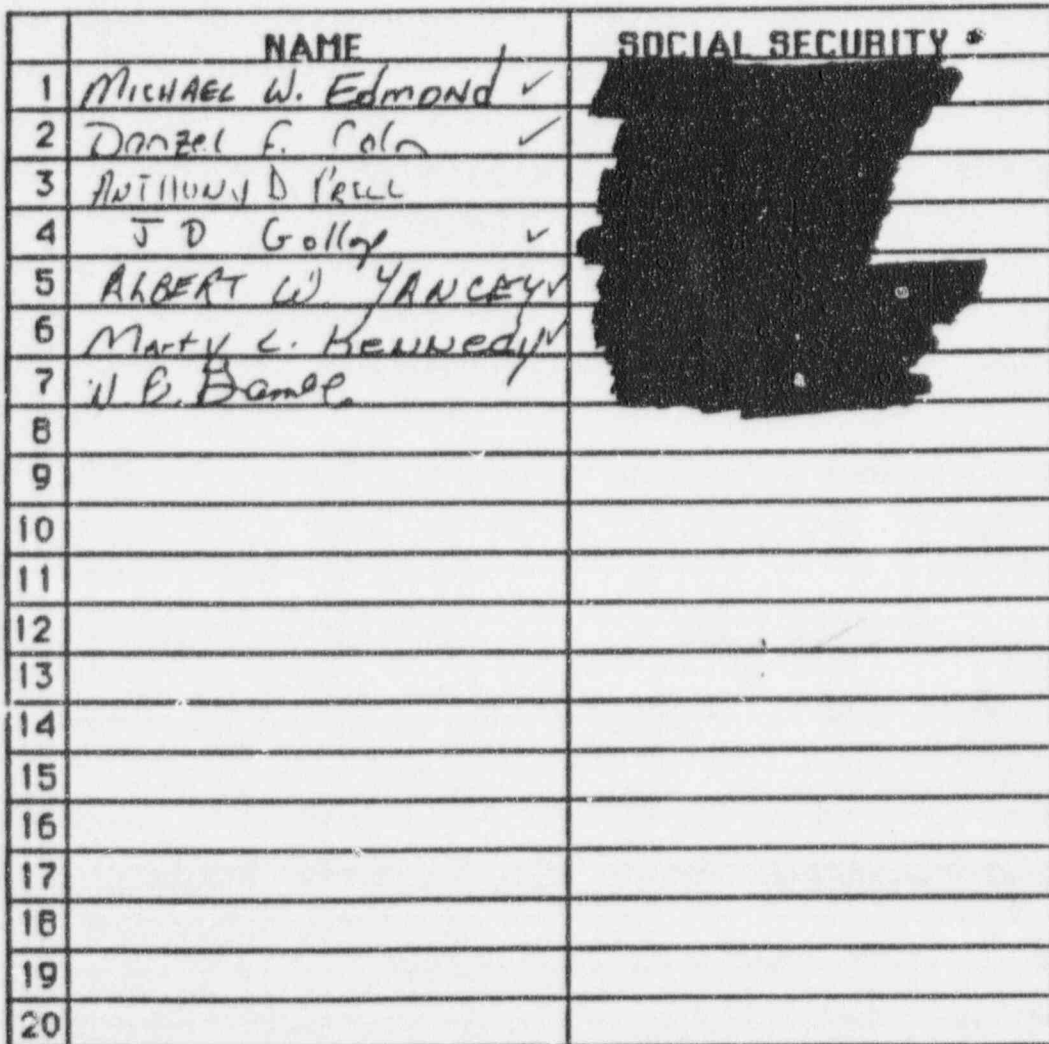 NAME SOCIAL SECURITY #
1 MICHAEL W. Edmond ✓
2 Danzel F. ✓
3 ANTHONY D
4 J D ✓
5 ALBERT W YANCEY ✓
6 Marty L. Kennedy ✓
7
8
9
10
11
12
13
14
15
16
17
18
19
20